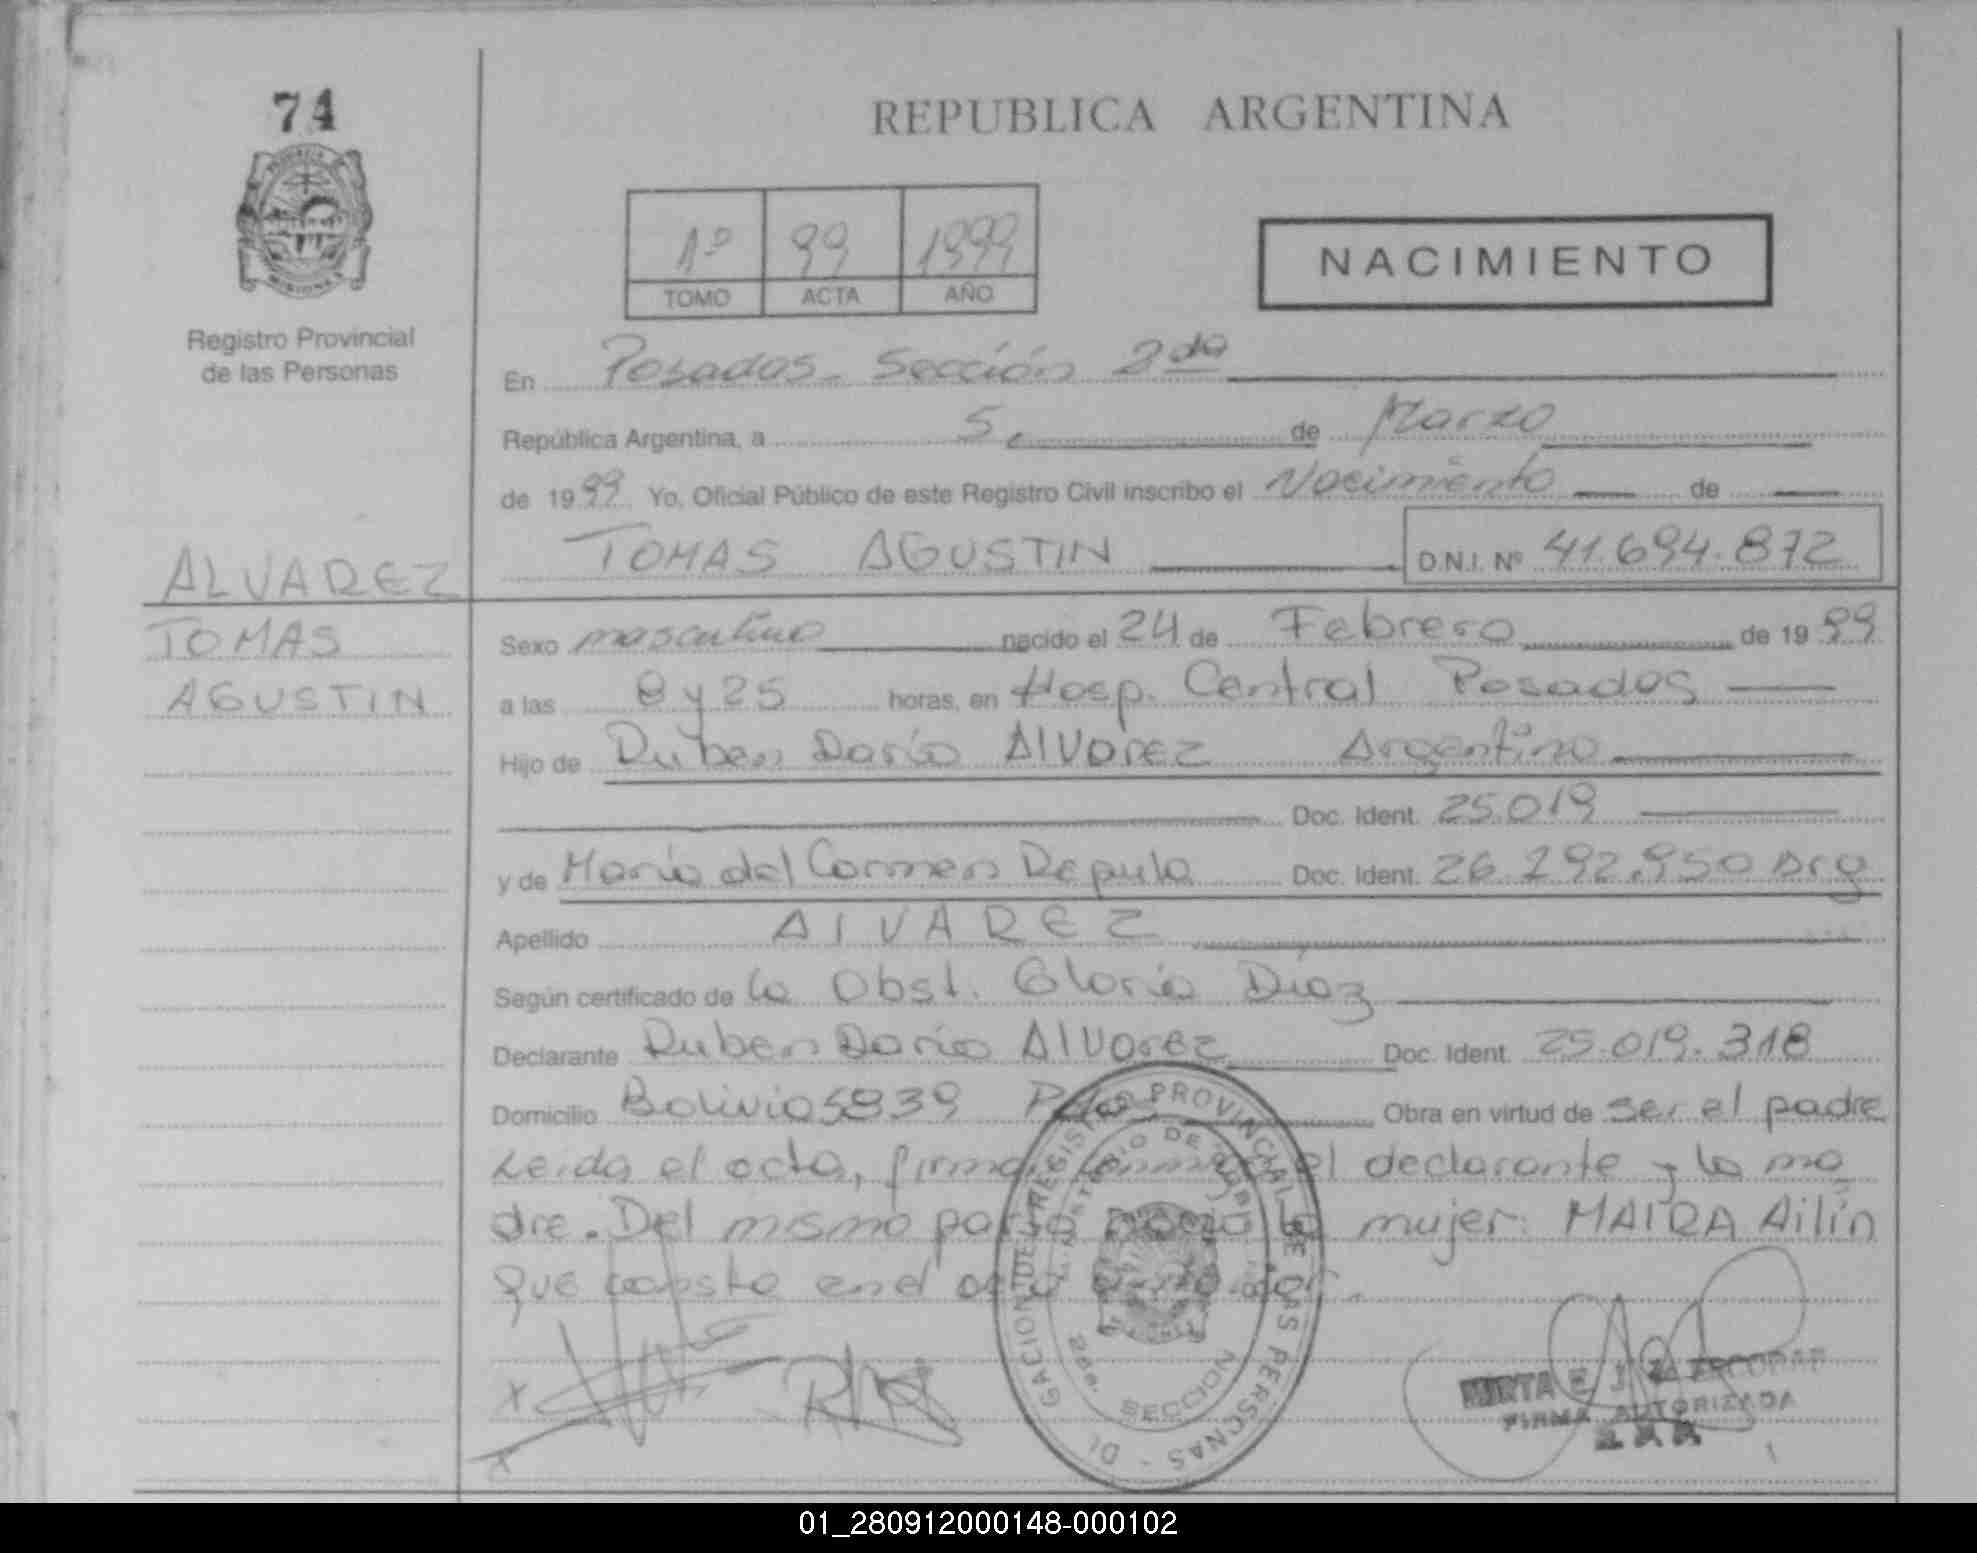 74
REPUBLICA ARGENTINA
1º 99 1999
TOMO ACTA AÑO
NACIMIENTO
Registro Provincial
de las Personas
En Posadas - Sección 2da
República Argentina, a 5 de Marzo
de 1999 Yo, Oficial Público de este Registro Civil inscribo el Nacimiento de
TOMAS AGUSTIN D.N.I. Nº 41.694.872
ALVAREZ
TOMAS
AGUSTIN
Sexo masculino nacido el 24 de Febrero de 1999
a las 8 y 25 horas, en Hosp. Central Posadas
Hijo de Ruben Dario Alvarez Argentino
Doc. Ident. 25.019
y de Maria del Carmen Repula Doc. Ident. 26.292.950 Arg
Apellido ALVAREZ
Según certificado de la Obst. Gloria Diaz
Declarante Ruben Dario Alvarez Doc. Ident. 25.019.318
Domicilio Bolivia 5839 Pdas Obra en virtud de ser el padre
Leida el acta, firma conmigo el declarante y la ma
dre. Del mismo parto nació la mujer: MAIRA Ailín
que consta en el acta
REGISTRO PROVINCIAL DE LAS PERSONAS
SECCION
MIRTA E. J. ESCOBAR
FIRMA AUTORIZADA
01_280912000148-000102